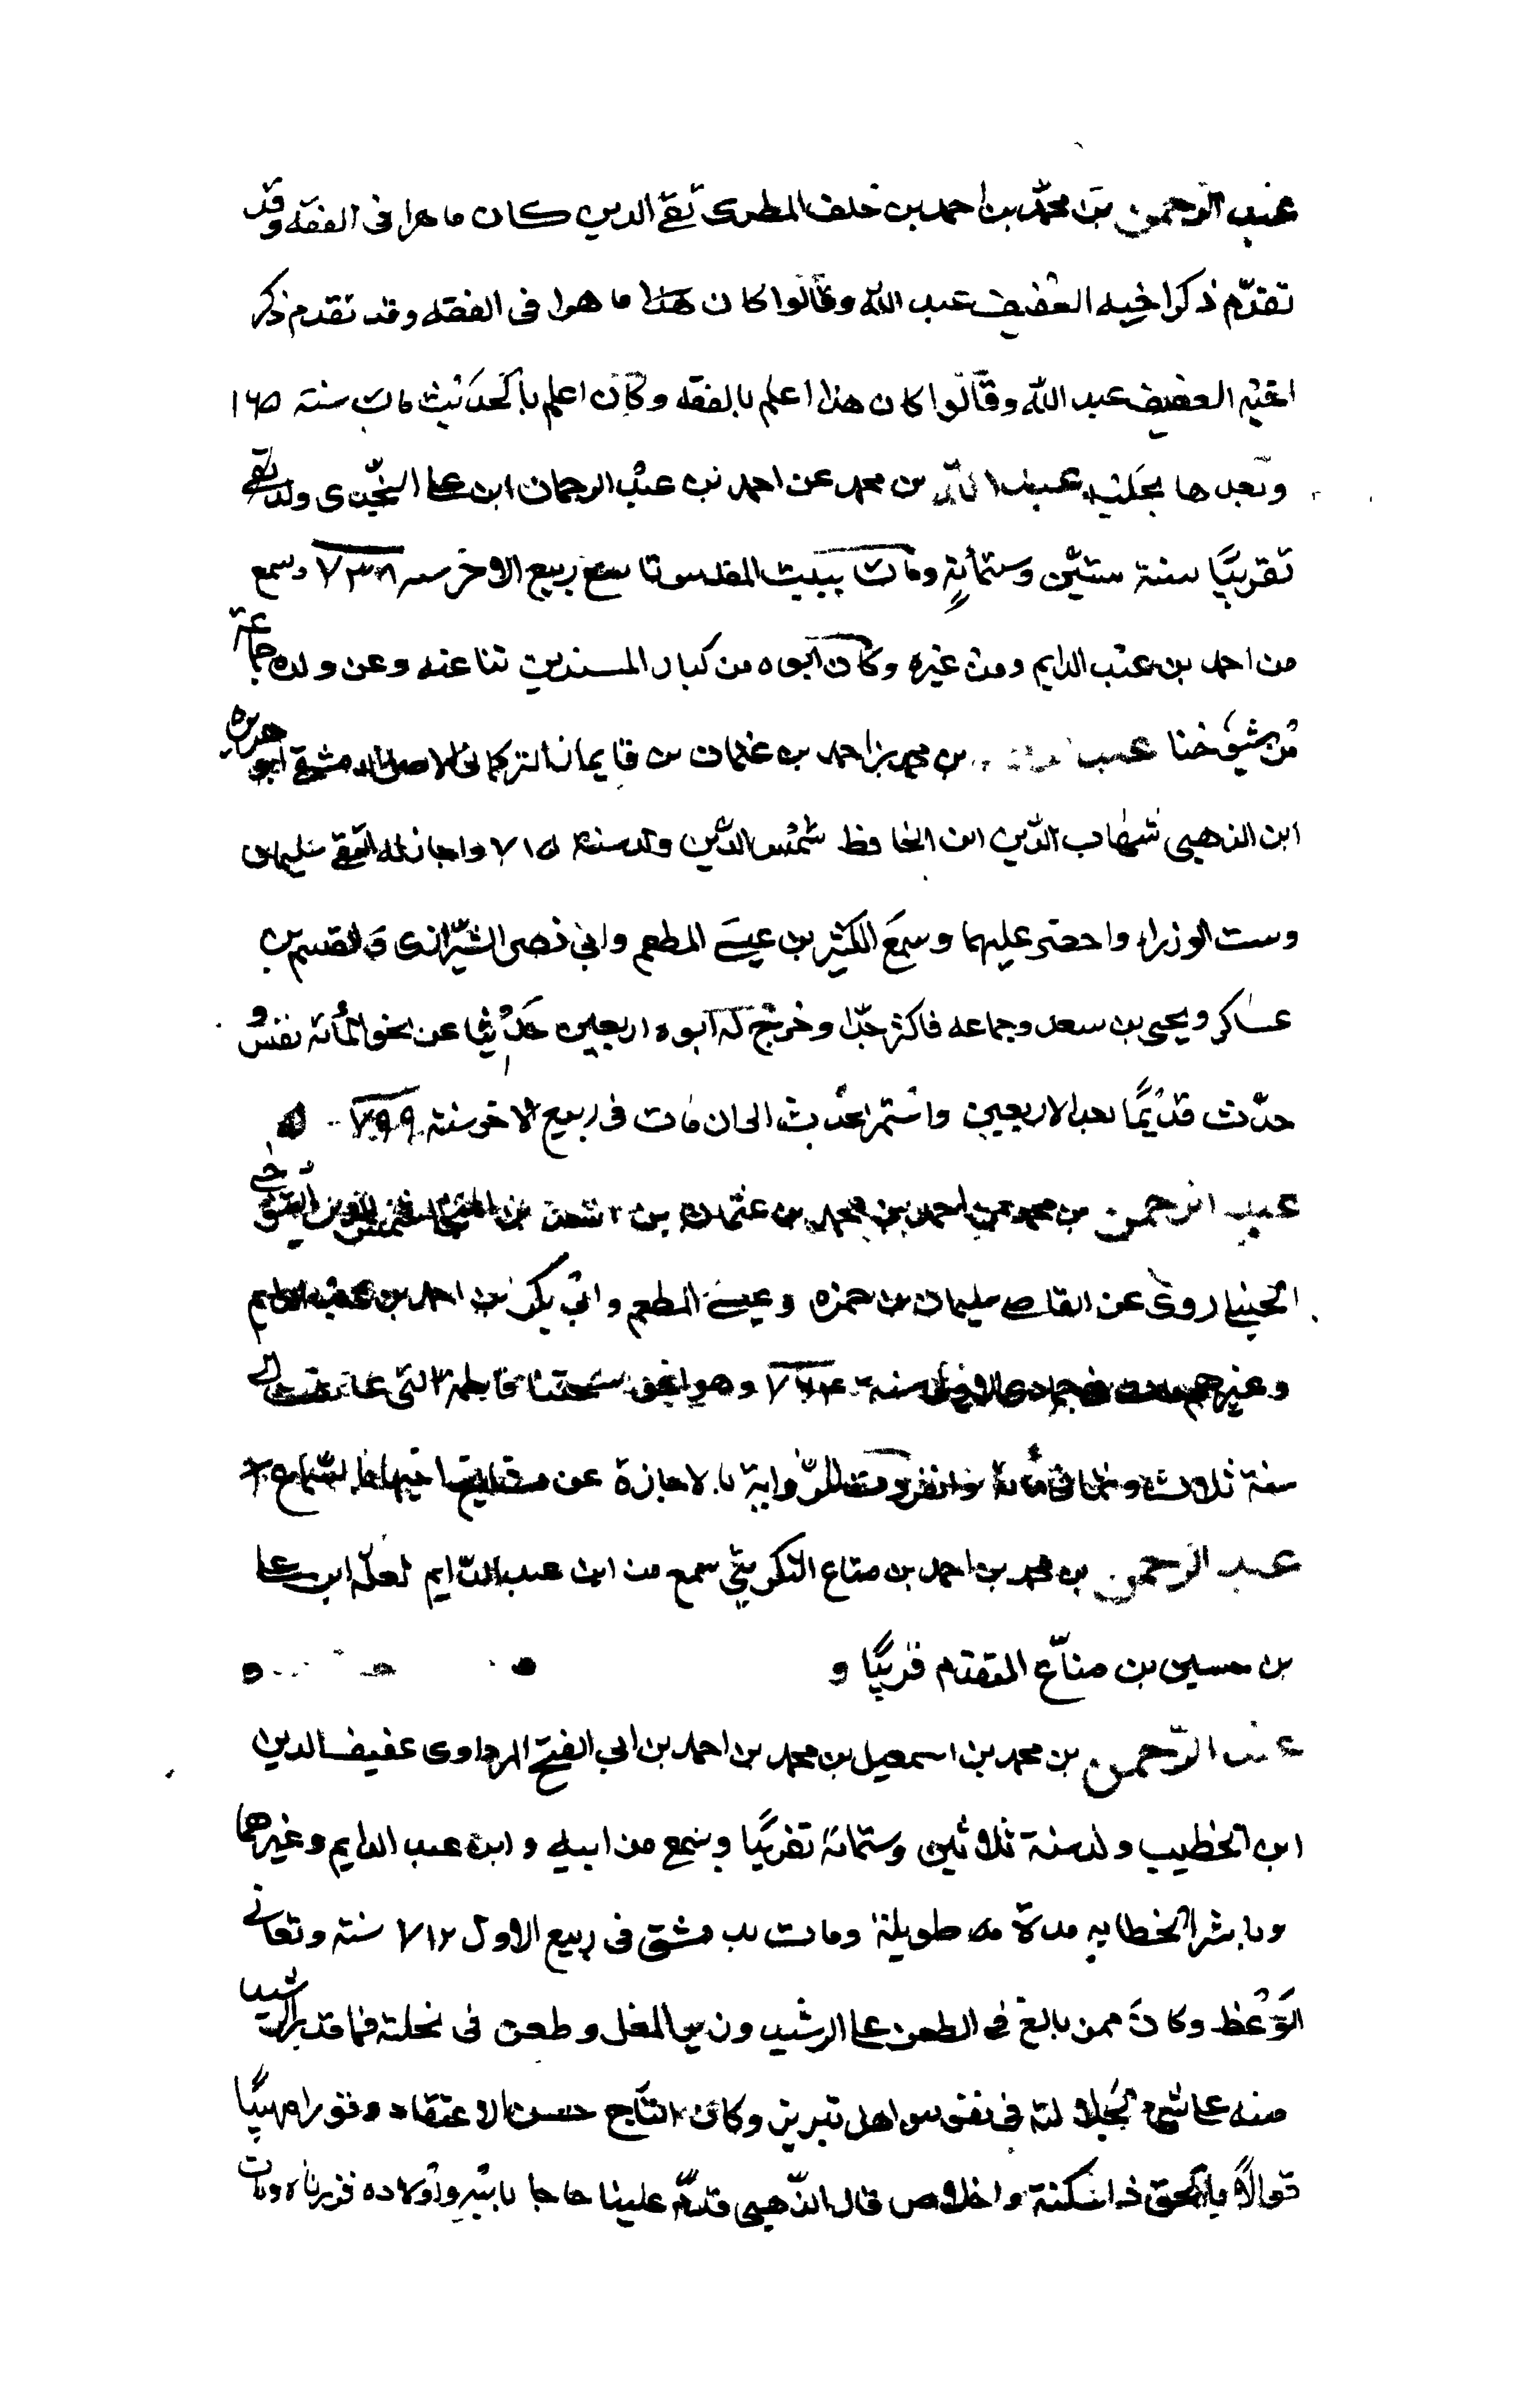 عبد الرحمن بن محمد بن احمد بن خلف المطرى تقي الدين كان ماهرا فى الفقه وقد
تقدّم ذكر اخيه العفيف عبد الله وقالوا كان هذا ماهرا فى الفقه وقد تقدم ذكر
اخيه العفيف عبد الله وقالوا كان هذا اعلم بالفقه وكان اعلم بالحديث مات سنة
بن محمد عن احمد بن عبد الرحمان ابن على ولد
تقريبًا سنة ستين وستمأية ومات ببيت المقدس تاسع ربيع الاخر سنه ٧٣٨ وسمع
من احمد بن عبد الدايم ومن غيره وكان ابوه من كبار المسندين ثنا عنه وعن ولده جماعة
من شيوخنا عبد بن محمد بن احمد بن عثمان بن قايماز التركمانى الاصل الدمشقي ابو هريرة
ابن الذهبى شهاب الدّين ابن الحافظ شمس الدّين ولد سنة ٧١٥ واجاز له التقي سليمان
وست الوزراء واحضر عليهما وسمع الكثير من عيسى المطعم وابي نصر الشيرازى والقسم بن
عساكر ويحيى بن سعد وجماعه فاكثر جدّا وخرّج له ابوه اربعين حديثا عن نحو المأية نفس و
حدّث قديمًا بعد الاربعين واستمر يحدث الى ان مات فى ربيع الاخر سنة ٧٩٩
عبد الرحمن بن محمد بن احمد بن محمد بن عثمان بن اسعد بن المنجا شمس الدين التنوخي
الحنبلي روى عن القاضي سليمان بن حمزه وعيسى المطعم وابي بكر بن احمد بن عبد الدايم
وغيرهم مات فى جمادى سنة وهو اخو شيختنا فاطمة التى عاشت الى
سنة ثلاث وثمانمأية وانفردت بالرّواية بالاجازة عن
عبد الرحمن بن محمد بن احمد بن مناع التكريتي سمع من ابن عبد الدّايم لعلّه ابن على
بن حسين بن منّاع المتقدم قريبًا و
عبد الرّحمن بن محمد بن اسمعيل بن محمد بن احمد بن ابي الفتح المرداوى عفيف الدين
ابن الخطيب ولد سنة ثلاثين وستمائة تقريبًا وسمع من ابيه وابن عبد الدايم وغيرهما
وباشر الخطابه مدة طويلة ومات بدمشق فى ربيع الاول ٧١٢ سنة وتعانى
الوعظ وكان ممن بالغ فى الطعن على الرشيد وزير المغل وطعن فى نحلته فما قدر الرشيد
منه على شئ لجلالته فى نفوس اهل تبريز وكان التاج حسن الاعتقاد وقورا مهيبًا
قوالاً بالحق ذا سكنة واخلاص قال الذّهبى قدم علينا حاجا